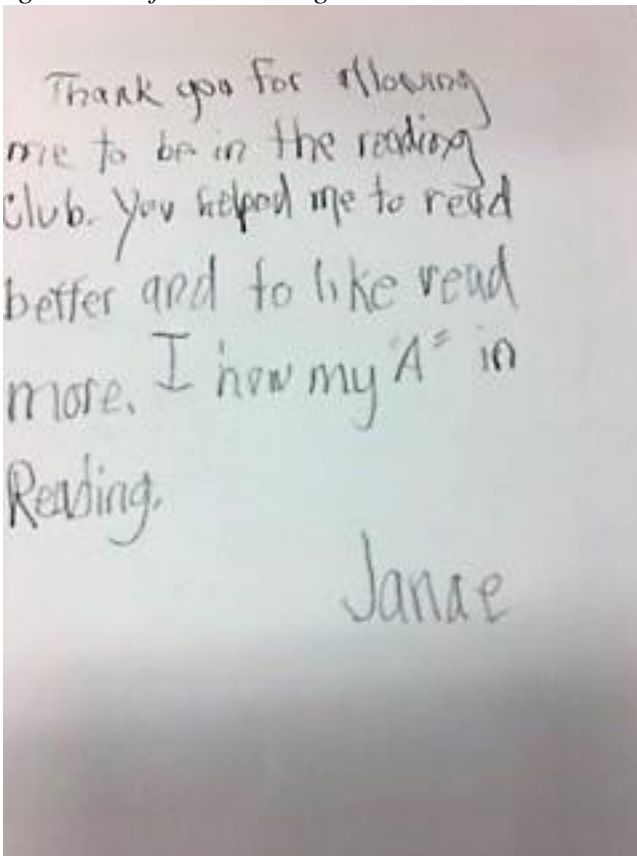 Thank you for allowing
me to be in the reading
club. You helped me to read
better and to like read
more. I how my "A" in
Reading.
Janae